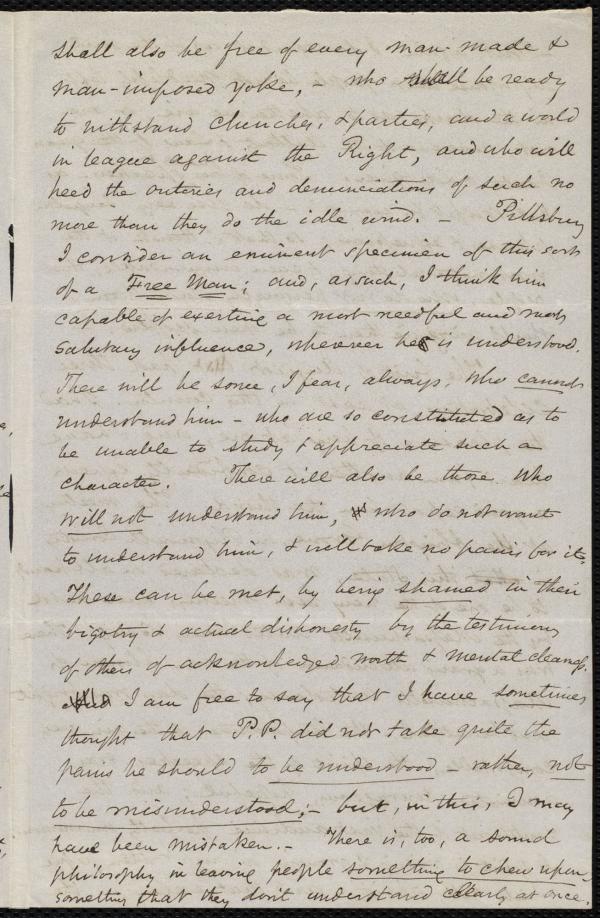 shall also be free of every man-made &
man-imposed yoke, - who shall be ready
to withstand Churches, & parties, and a world
in league against the Right, and who will
heed the outcries and denunciations of such no
more than they do the idle wind. - Pillsbury
I consider an eminent specimen of this sort
of a Free Man; and, as such, I think him
capable of exerting a most needful and most
salutary influence, wherever he is understood.
There will be some, I fear, always, who cannot
understand him - who are so constituted as to
be unable to study & appreciate such a
character. There will also be those who
will not understand him, who do not want
to understand him, & will take no pains for it.
These can be met, by being shamed in their
bigotry & actual dishonesty by the testimony
of others of acknowledged worth & mental clearness.
I am free to say that I have sometimes
thought that P.P. did not take quite the
pains he should to be understood - rather, not
to be misunderstood; - but, in this, I may
have been mistaken. - There is, too, a sound
philosophy in leaving people something to chew upon,
something that they don't understand clearly at once,